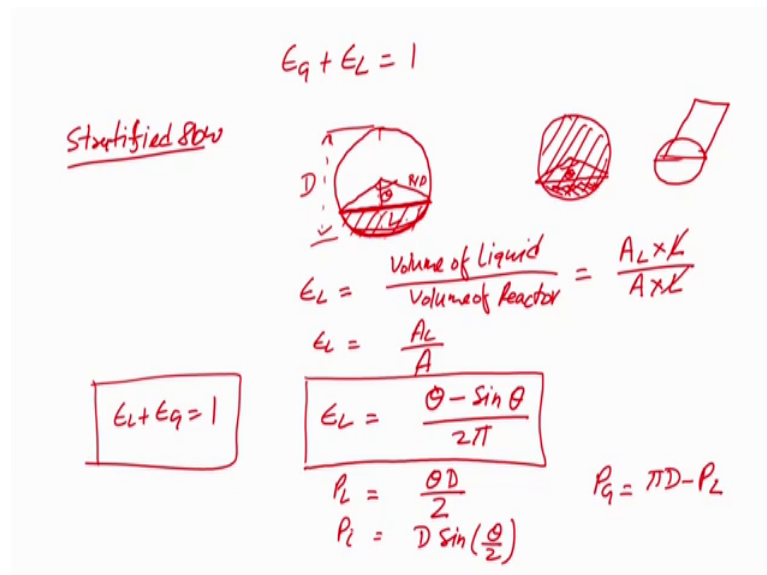 ϵG + ϵL = 1
Stratified flow
D
θ
R/D
L
θ
ϵL = Volume of Liquid / Volume of Reactor = AL × L / A × L
ϵL = AL / A
ϵL + ϵG = 1
ϵL = θ - sin θ / 2π
PL = θD / 2
PG = πD - PL
Pi = D sin(θ/2)